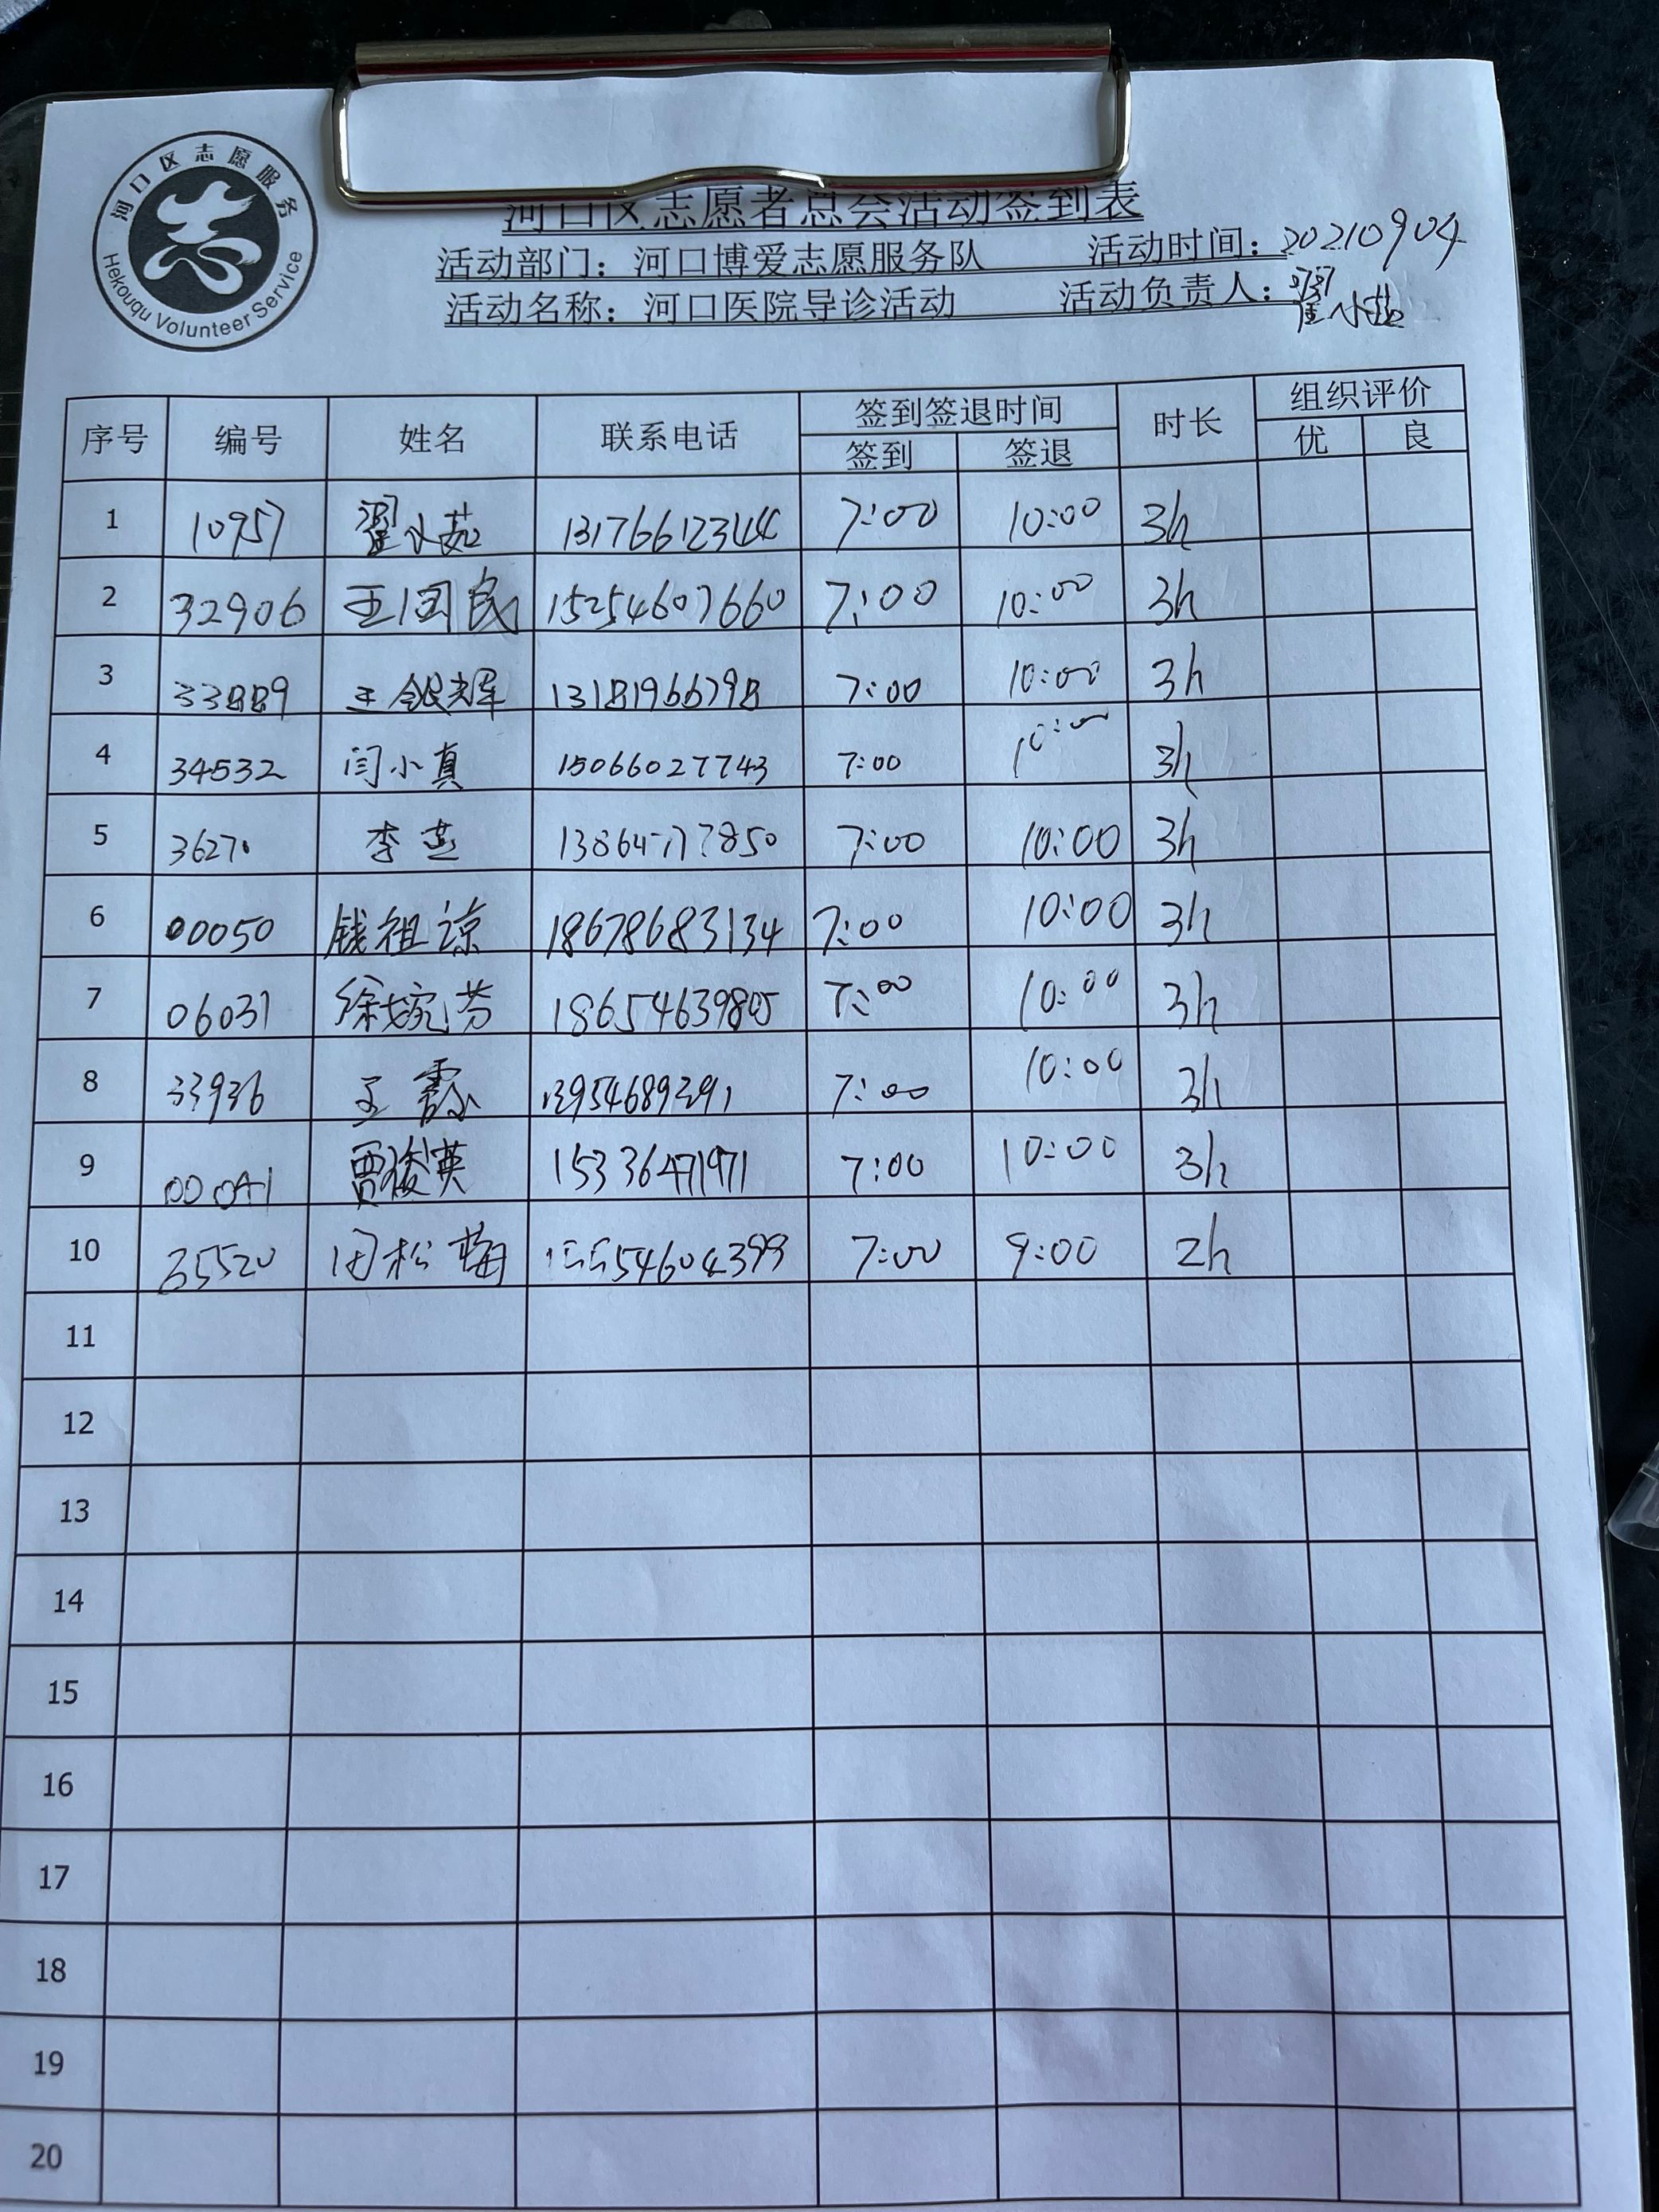 河口区志愿服务
Hekouqu Volunteer Service
河口区志愿者总会活动签到表
活动部门：河口博爱志愿服务队 活动时间：20210904
活动名称：河口医院导诊活动 活动负责人：翟小茹
序号 编号 姓名 联系电话 签到签退时间 时长 组织评价
签到 签退 优 良
1 10957 翟小茹 13176612344 7:00 10:00 3h
2 32906 王国民 15254607660 7:00 10:00 3h
3 33889 王银辉 13181966798 7:00 10:00 3h
4 34532 闫小真 15066027743 7:00 10:00 3h
5 3627 李燕 13864777850 7:00 10:00 3h
6 00050 钱祖谅 18678683134 7:00 10:00 3h
7 06031 徐婉芬 18654639805 7:00 10:00 3h
8 33936 王霞 13954689391 7:00 10:00 3h
9 00041 贾俊英 15336471971 7:00 10:00 3h
10 35520 田松梅 7:00 9:00 2h
11
12
13
14
15
16
17
18
19
20